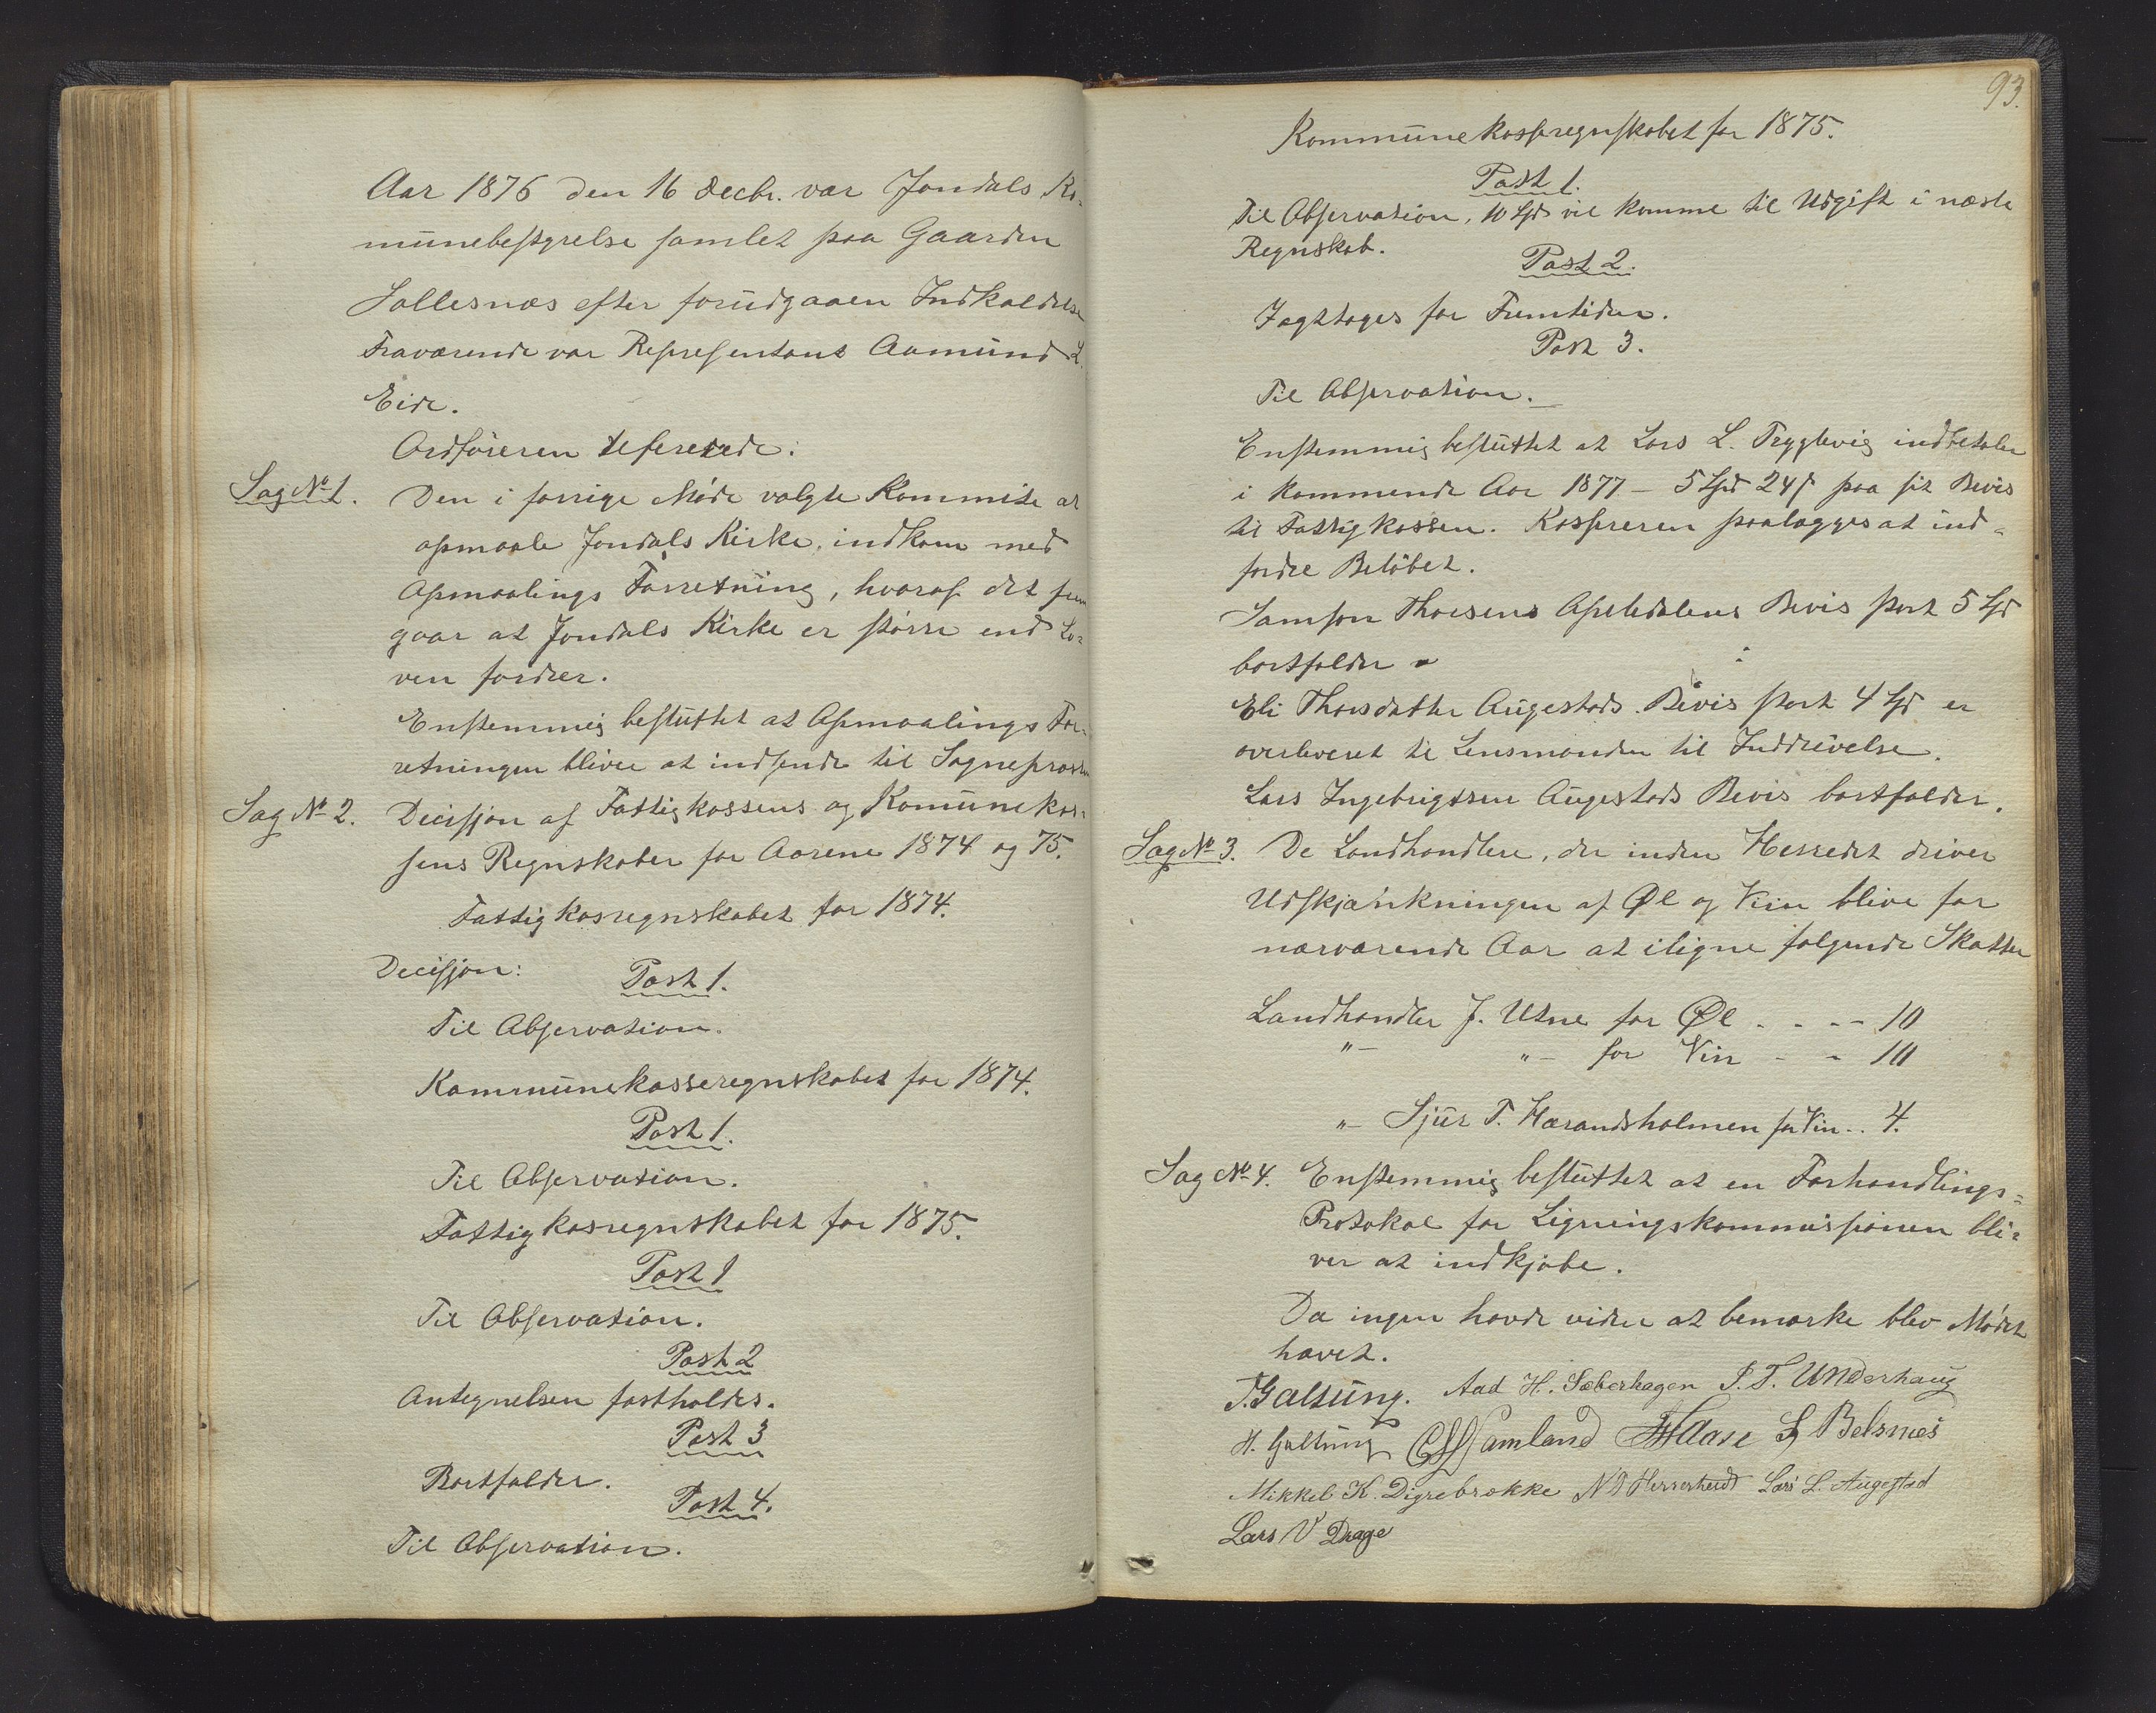 Aar 1876 den 16 Decbr. var Jondals Ko-
munebestyrelse samlet paa Gaarden
Sollesnæs efter forudgaaen Indkaldelse
Fraværende var Represententant Aamund L.
Eide.
Ordføreren refererede:
Sag No 1. Den i forrige Møde valgte Kommite at
opmaale Jondals Kirke, indkom med
Opmaalings Forretning, hvoraf det frem
gaar at Jondals Kirke er større end Lo-
ven fordrer.
Enstemmig besluttet at Opmaalings For-
retningen bliver at indsende til Sognepræsten
Sag No 2. Decisjon af Fattigkassens og Komunekas-
sens Regnskaber for Aarene 1874 og 75.
Fattigkasregnskabet for 1874.
Decisjon: Post 1.
Til Observation.
Kommunekasseregnskabet for 1874.
Post 1.
Til Observation.
Fattigkasregnskabet for 1875.
Post 1
Til Observation.
Post 2
Antegnelsen fastholdes.
Post 3
Bortfalder.
Post 4.
Til Observation.
93.
Kommunekasseregnskabet for 1875.
Post 1.
Til Observation, 10 Spd vil komme til Udgift i næste
Regnskab.
Post 2.
Iagttages for Fremtiden.
Post 3.
Til Observation.
Enstemmig besluttet at Lars L. Tryglevig indbetaler
i kommende Aar 1877 – 5 Spd 24 s paa sit Bevis
til Fattigkassen. Kassereren paalægges at ind-
fordre Beløbet.
Samson Thorsens Apeldalens Bevis stort 5 Spd
bortfalder
Eli Thorsdatter Augestads Bevis stort 4 Spd er
overleveret til Lensmanden til Inddrivelse.
Lars Ingebrigtsen Augestads Bevis bortfalder.
Sag No 3. De Landhandlere, der inden Herredet driver
Udskjænkningen af Øl og Viin blive for
nærværende Aar at iligne følgende Skatter
Landhandler J. Utne for Øl . . - - 10
"– "– for Vin - - 10
"– Sjur T. Hærandsholmen for Vin .. 4.
Sag No 4. Enstemmig besluttet at en Forhandlings-
Protokol for Ligningskommissionen bli-
ver at indkjøbe.
Da ingen havde videre at bemærke blev Mødet
hævet.
T. Galtung. Aad H. Sæberhagen S. T. Underhaug
H. Galtung Samland Aase S Belsnes
Mikkel K. Digrebrække N T Herrestvedt Lars L. Augestad
Lars V Drage